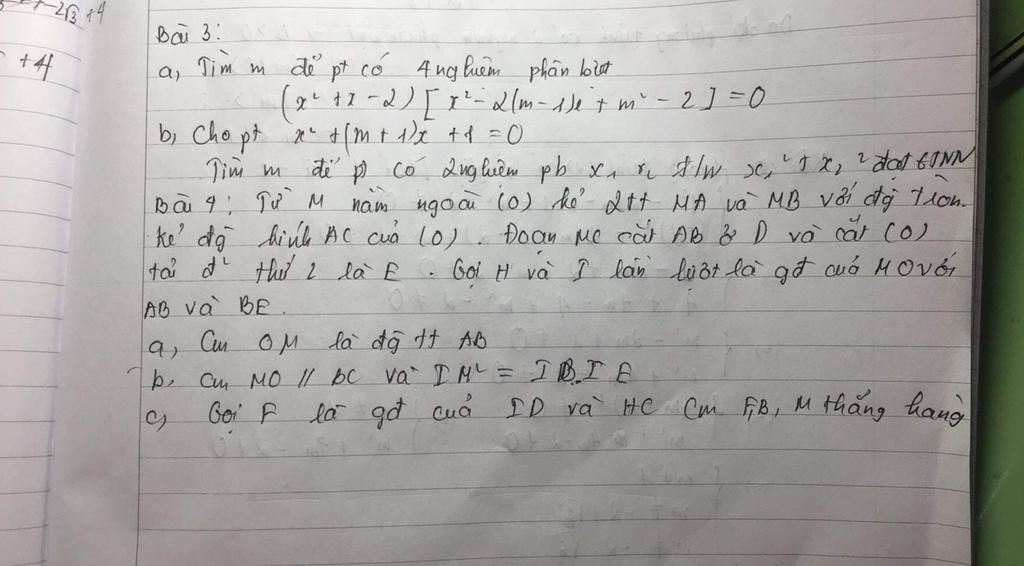 -2√3 +4
+4
Bài 3:
a, Tìm m để pt có 4 nghiệm phân biệt
(x² + x - 2) [x² - 2(m - 1)x + m² - 2] = 0
b, Cho pt x² + (m + 1)x + 1 = 0
Tìm m để pt có 2 nghiệm pb x₁ x₂ t/m x₁² + x₂² đạt GTNN
Bài 4: Từ M nằm ngoài (O) kẻ 2tt MA và MB với đg tròn.
kẻ đg kính AC của (O). Đoạn MC cắt AB ở D và cắt (O)
tại đ² thứ 2 là E. Gọi H và I lần lượt là gđ của MO với
AB và BE.
a, Cm OM là đg tt AB
b, Cm MO // BC và IM² = IB.IE
c, Gọi F là gđ của ID và HC Cm F,B, M thẳng hàng